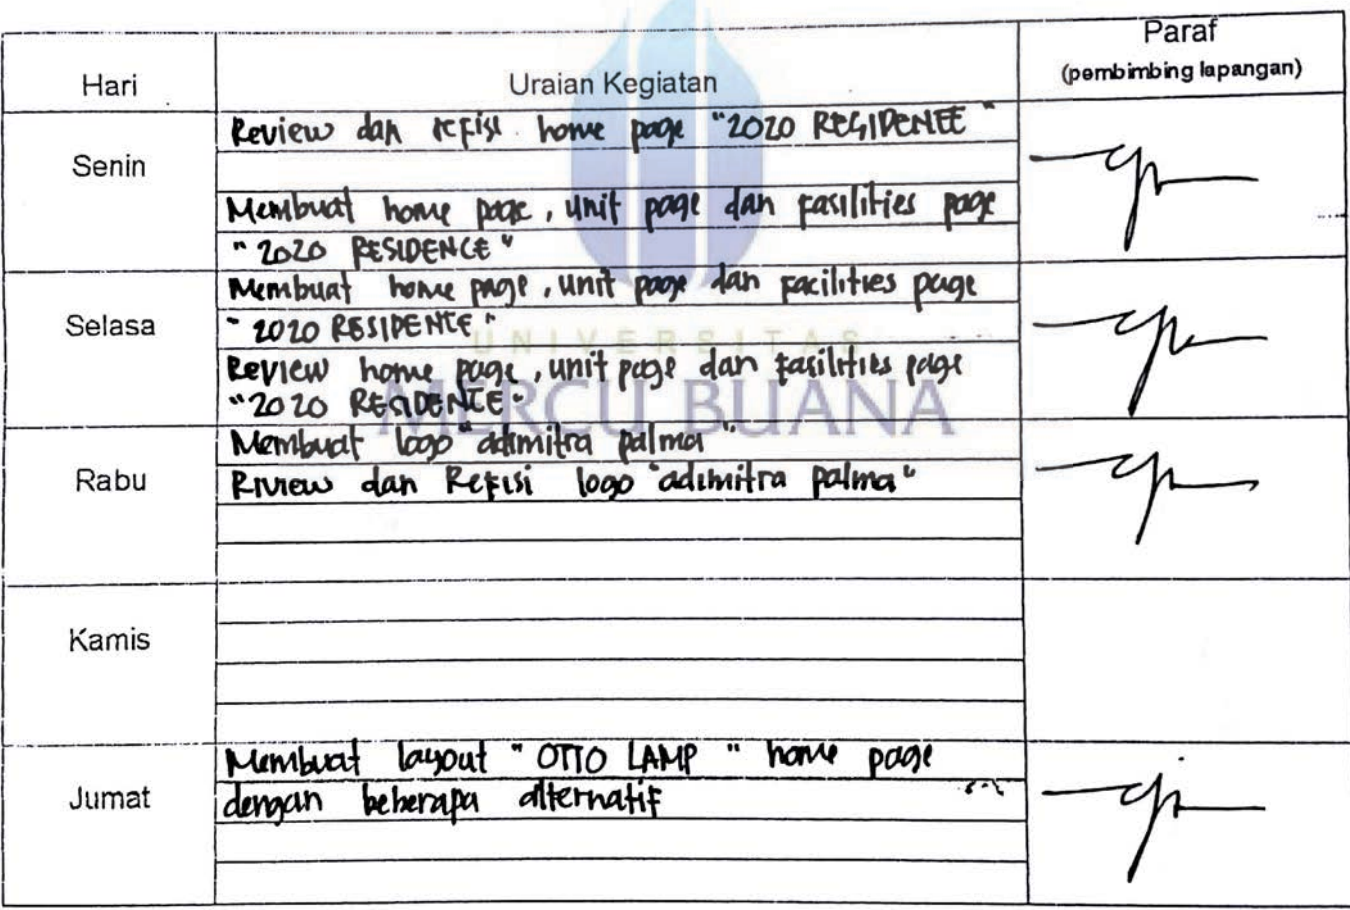 Hari Uraian Kegiatan Paraf
(pembimbing lapangan)
Senin
Review dan refisi home page "2020 RESIDENCE"
Membuat home page, unit page dan fasilities page
"2020 RESIDENCE"
Selasa
Membuat home page, unit page dan facilities page
"2020 RESIDENCE"
UNIVERSITAS
Review home page, unit page dan fasilities page
"2020 RESIDENCE"
MERCU BUANA
Rabu
Membuat logo "adimitra palma"
Riview dan Refisi logo "adimitra palma"
Kamis
Jumat
Membuat layout "OTTO LAMP" home page
dengan beberapa alternatif